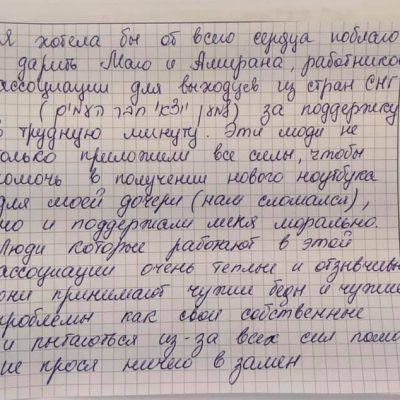 Я хотела бы от всего сердца поблаго
дарить Маго и Амирана, работников
ассоциации для выходцев из стран СНГ
за поддержку
в трудную минуту. Эти люди не
только приложили все силы, чтобы
помочь в получении нового ноутбука
для моей дочери (наш сломался),
но и поддержали меня морально.
Люди которые работают в этой
ассоциации очень теплые и отзывчивы
они принимают чужие беды и чужие
проблемы как свои собственные
и пытаються из-за всех сил помо
не прося ничего в замен